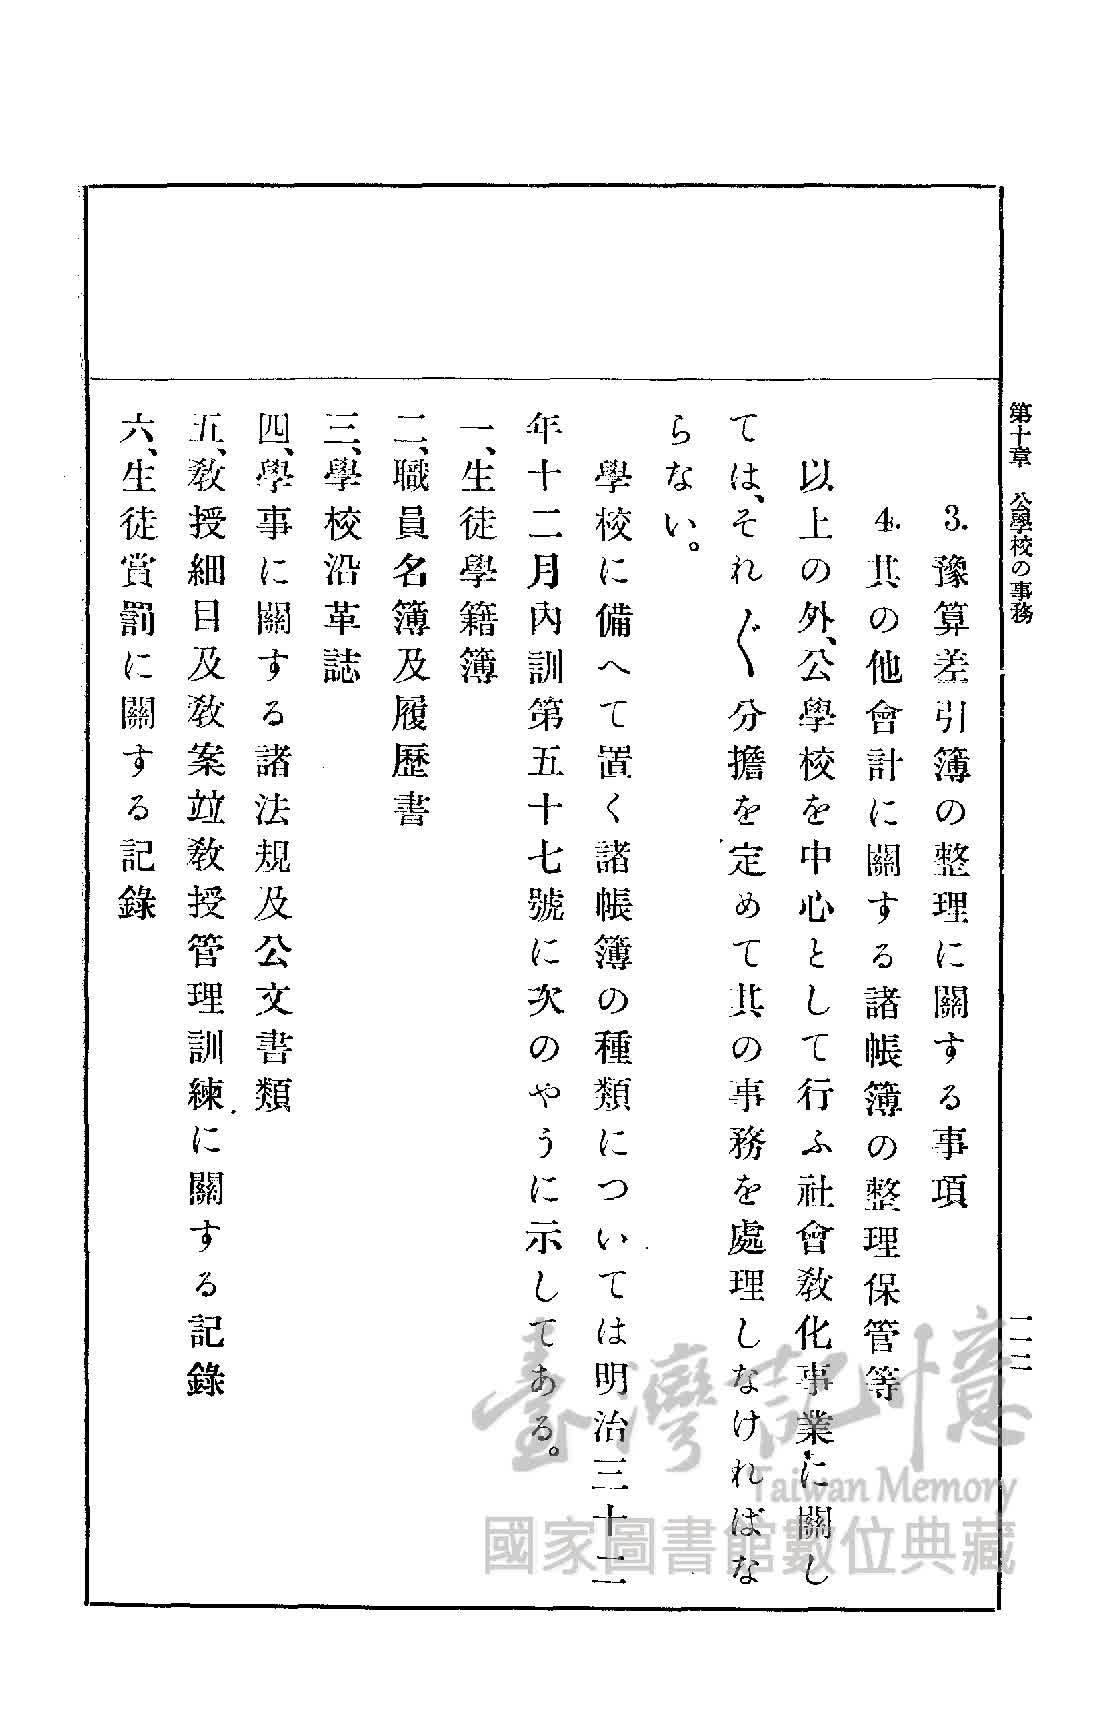 第十章 公學校の事務
一一二
3. 豫算差引簿の整理に關する事項
4. 其の他會計に關する諸帳簿の整理保管等
以上の外、公學校を中心として行ふ社會敎化事業に關し
ては、それ〴〵分擔を定めて其の事務を處理しなければな
らない。
學校に備へて置く諸帳簿の種類については明治三十二
年十二月內訓第五十七號に次のやうに示してある。
一、生徒學籍簿
二、職員名簿及履歷書
三、學校沿革誌
四、學事に關する諸法規及公文書類
五、敎授細目及敎案竝敎授管理訓練に關する記錄
六、生徒賞罰に關する記錄
臺灣記憶
Taiwan Memory
國家圖書館數位典藏